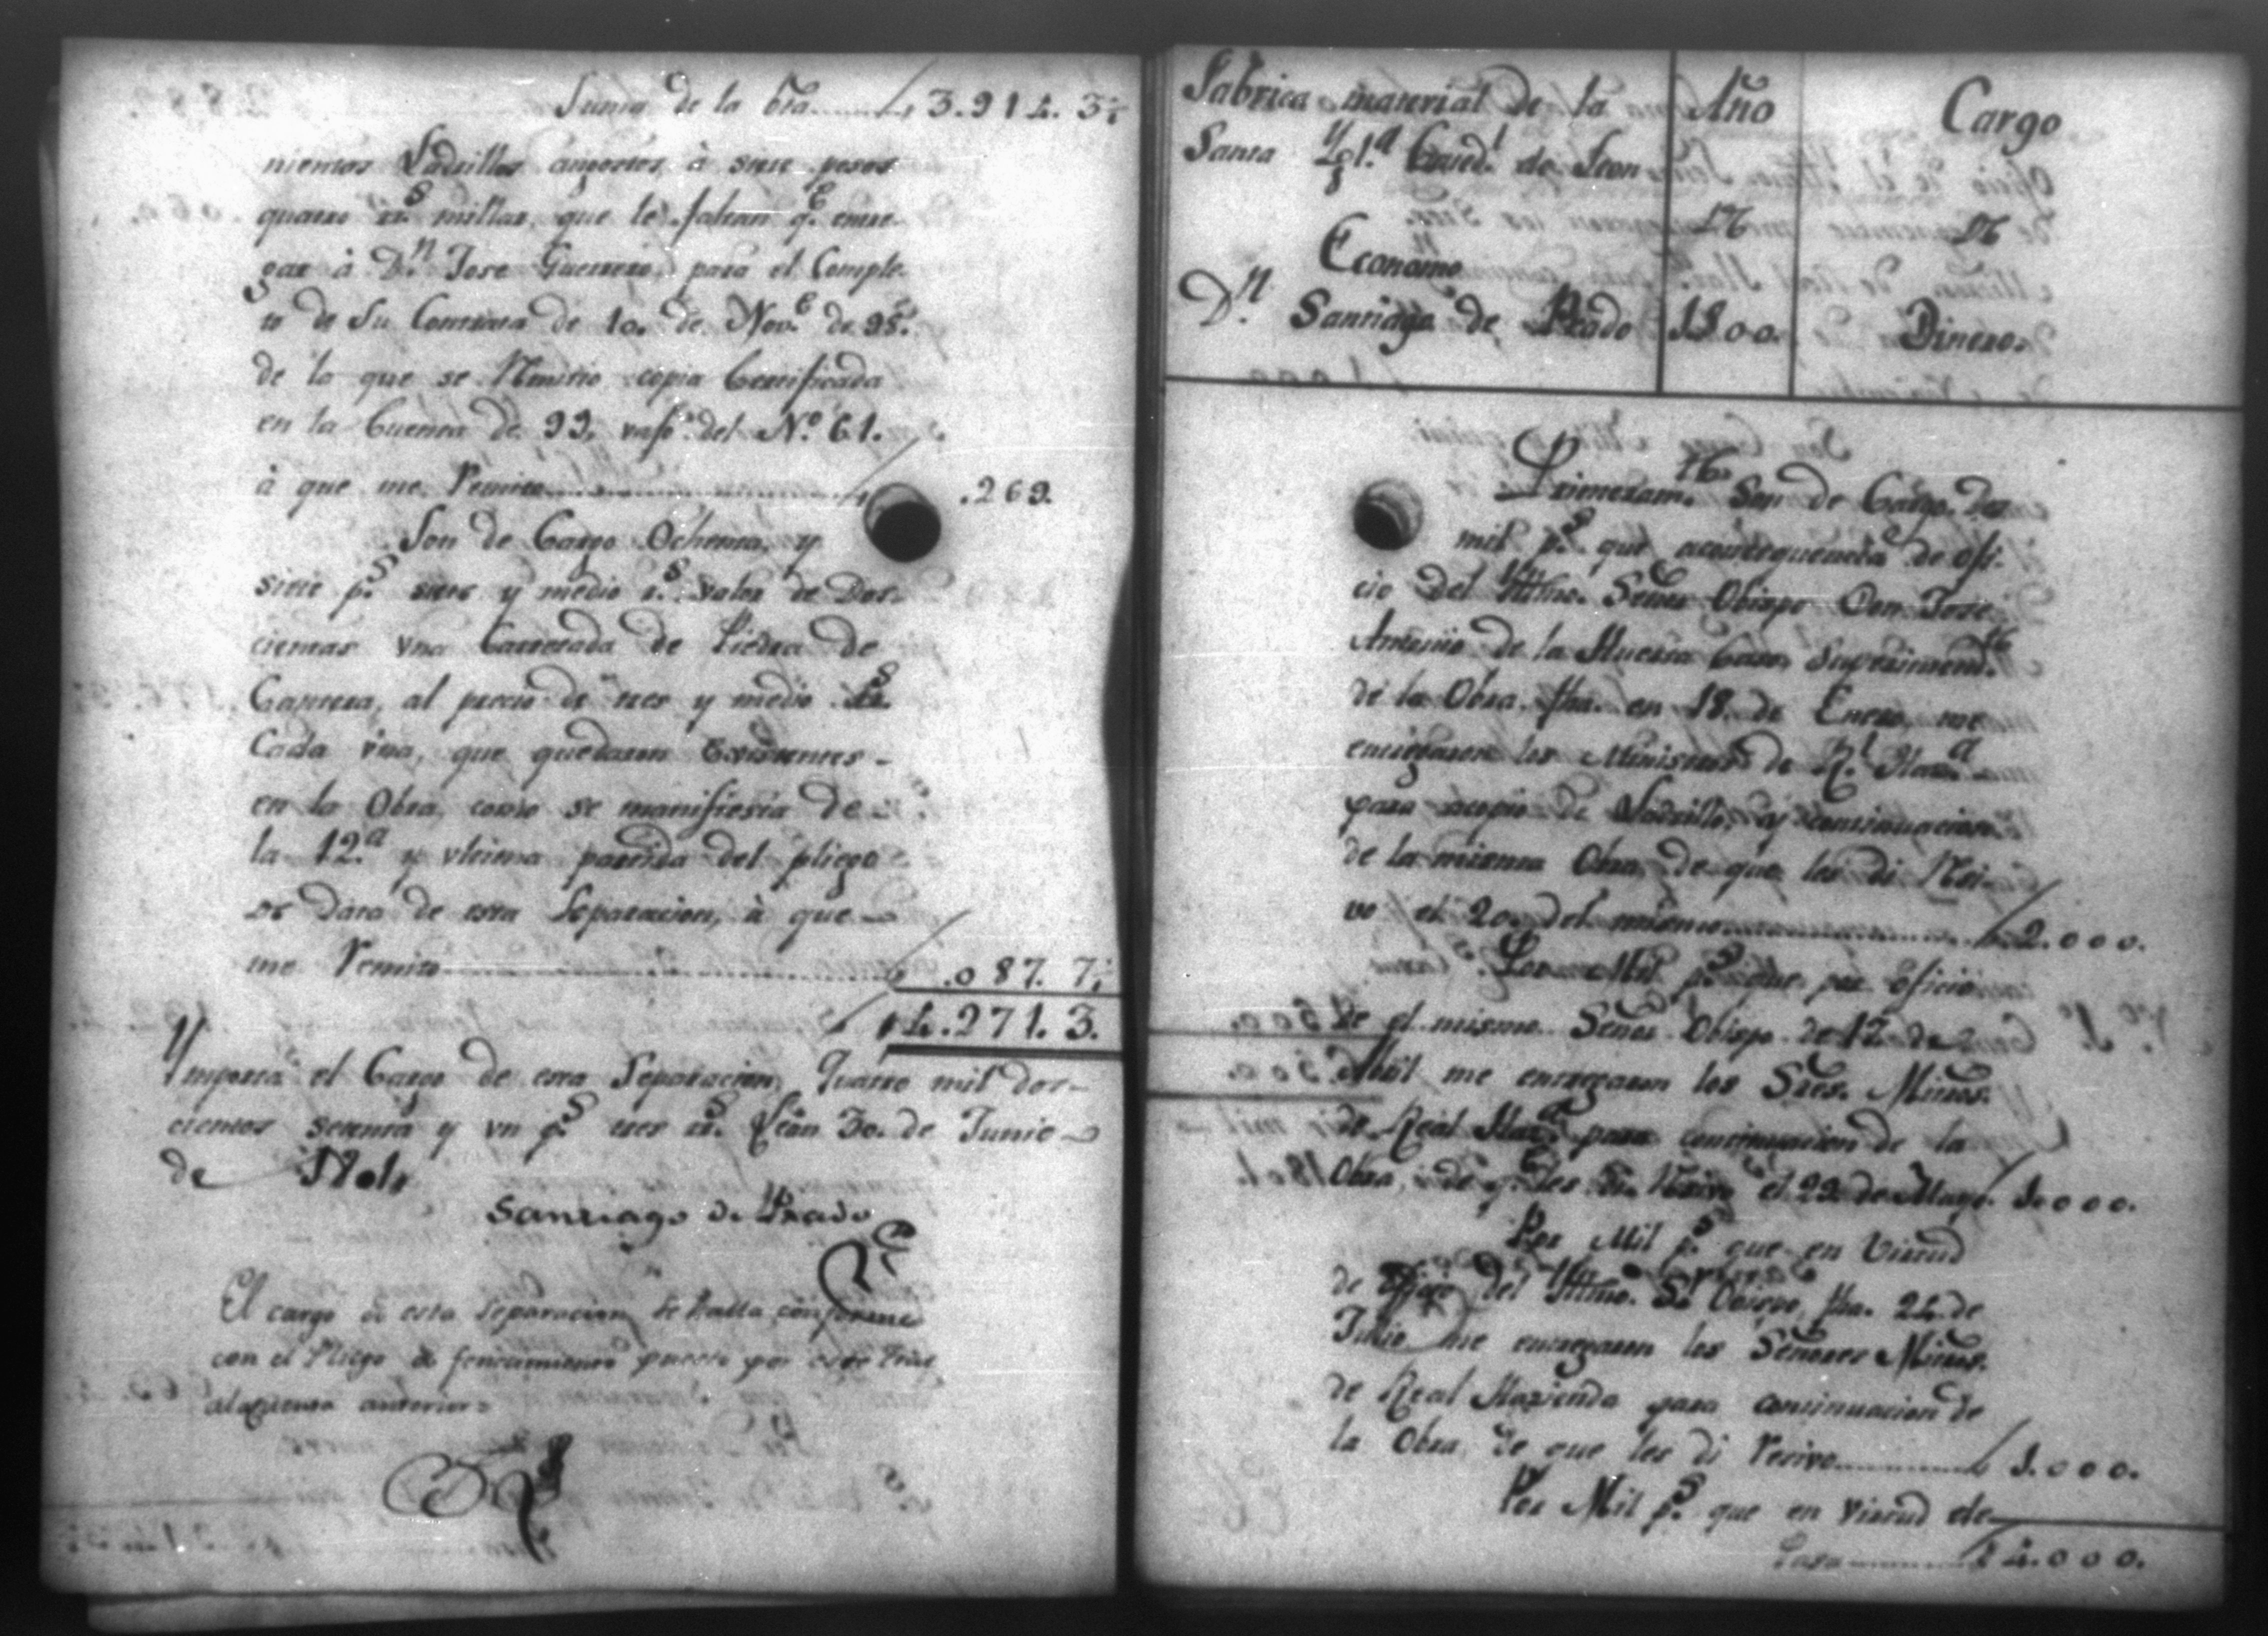 Suma de la bta 3.914.3½
nientos Ladrillos angostos à siete pesos
quatro rr.s millar, que le faltan q.e entre-
gar à D.n Jose Guerrero para el Comple-
to de Su Contrata de 10. de Nov.e de 98.
de la que se Remitio copia Certificada
en la Cuenta de 99, vajo del N.o 61.
à que me Remito .269.
Son de Cargo Ochenta, y
siete p.s siete y medio r.s valor de Dos-
cientas vna Carretada de Piedra de
Cantera, al precio de tres y medio rr.s
Cada vna, que quedaron Existentes-
en la Obra, como se manifiesta de
la 12.a y vltima partida del pliego
de Data de esta Separacion, à que
me Remito .087.7½
4.271.3.
Ymporta el Cargo de esta Separacion, Quatro mil dos-
cientos setenta y vn p.s tres rr.s Leon 30. de Junio
de 1801
Santiago de Prado
El cargo de esta Separacion se halla conforme
con el Pliego de fenecimiento puesto por
ala cuenta anterior=
Fabrica material de la
Santa Ygl.a Cated.l de Leon
Economo
D.n Santiago de Prado
Año
DE
1800.
Cargo
DE
Dinero.
Primeram.te Son de Cargo Dos
mil p.s que aconsequencia de ofi-
cio del Yttmo. Señor Obispo Don Jose
Antonio de la Huerta Caso, Superintend.te
de la Obra, fha. en 18. de Enero, me
entregaron los Ministros de R.l Haz.da
para acopio de Ladrillo, y continuacion
de la misma Obra, de que les di Resi-
vo el 20. del mismo 2.000.
Por Mil p.s que por oficio
de el mismo Señor Obispo de 12. de
Abril me entregaron los Sres. Minos.
de Real Haz.da para continuacion de la
Obra, de q.e les di Resivo el 22. de Mayo. 1.000.
Por Mil p.s que en Virtud
de Oficio del Yttmo. S.r Obispo, fha. 24. de
Julio me entregaron los Señores Minos.
de Real Hazienda para continuacion de
la Obra, de que les di resivo 1.000.
Por Mil p.s que en virtud de
Pasa 4.000.